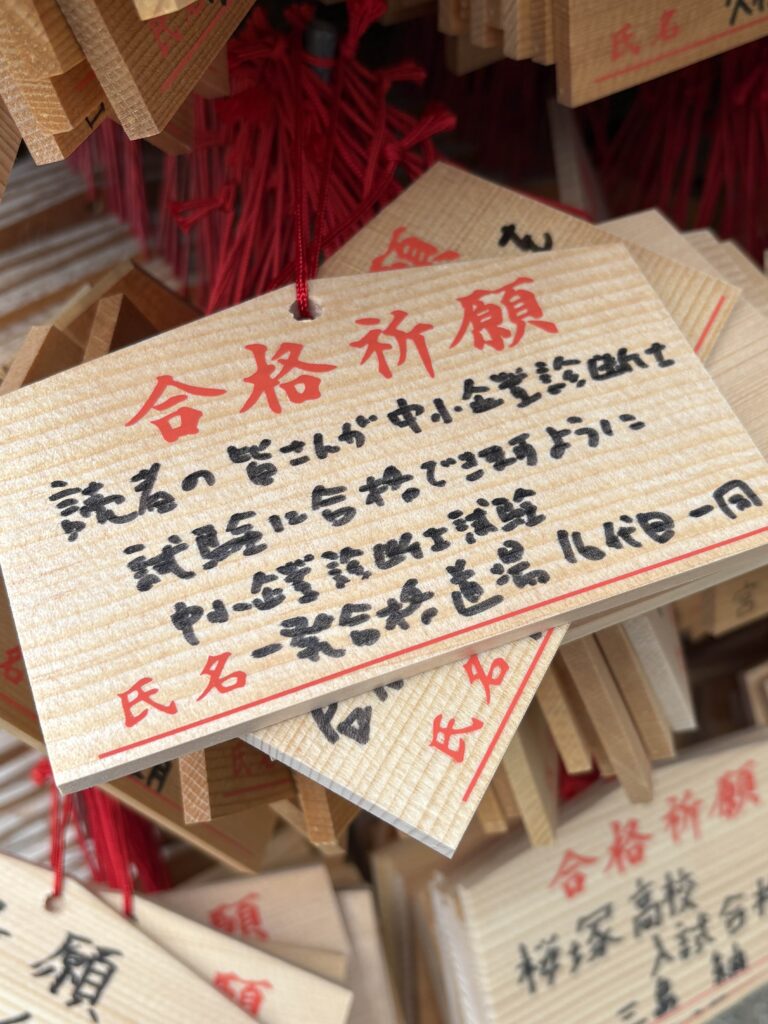 氏名
願
合格祈願
読者の皆さんが中小企業診断士
試験に合格できますように
中小企業診断士試験
氏名 一発合格道場 16代目一同
氏名
合格祈願
桜塚高校
入試合格
願
願
願